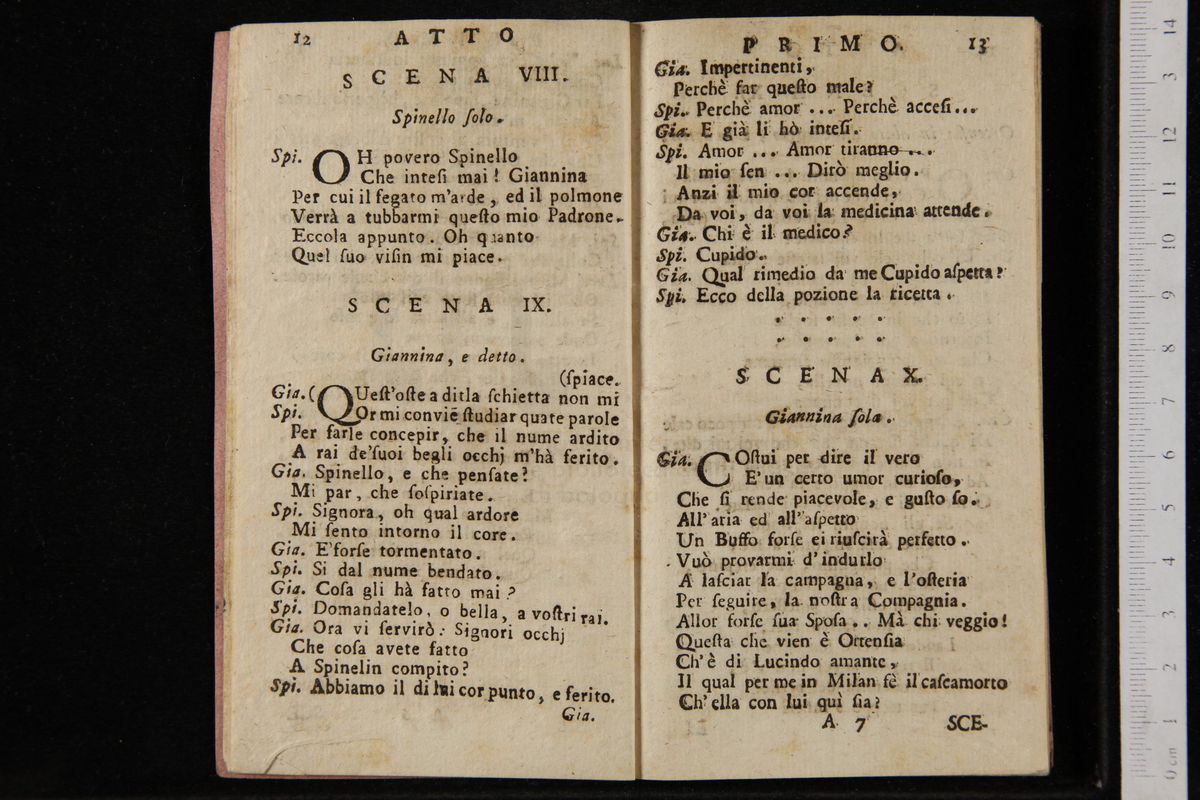 12 ATTO
SCENA VIII.
Spinello ſolo.
Spi. OH povero Spinello
Che inteſi mai! Giannina
Per cui il fegato m'arde, ed il polmone
Verrà a tubbarmi queſto mio Padrone.
Eccola appunto. Oh quanto
Quel ſuo viſin mi piace.
SCENA IX.
Giannina, e detto.
(ſpiace.
Gia. (QUeſt'oſte a dirla ſchietta non mi
Spi. Or mi conviẽ ſtudiar quate parole
Per farle concepir, che il nume ardito
A rai de'ſuoi begli occhj m'hà ferito.
Gia. Spinello, e che penſate?
Mi par, che ſoſpiriate.
Spi. Signora, oh qual ardore
Mi ſento intorno il core.
Gia. E'forſe tormentato.
Spi. Si dal nume bendato.
Gia. Coſa gli hà fatto mai?
Spi. Domandatelo, o bella, a voſtri rai.
Gia. Ora vi ſervirò: Signori occhj
Che coſa avete fatto
A Spinelin compito?
Spi. Abbiamo il di lui cor punto, e ferito.
Gia.
PRIMO. 13
Gia. Impertinenti,
Perchè far queſto male?
Spi. Perchè amor ... Perchè acceſi...
Gia. E già li hò inteſi.
Spi. Amor ... Amor tiranno ...
Il mio ſen ... Dirò meglio.
Anzi il mio cor accende,
Da voi, da voi la medicina attende.
Gia. Chi è il medico?
Spi. Cupido.
Gia. Qual rimedio da me Cupido aſpetta?
Spi. Ecco della pozione la ricetta.
. . . . .
. . . . .
SCENA X.
Giannina ſola.
Gia. COſtui per dire il vero
E'un certo umor curioſo,
Che ſi rende piacevole, e guſto ſo.
All'aria ed all'aſpetto
Un Buffo forſe ei riuſcirà perfetto.
Vuò provarmi d'indurlo
A laſciar la campagna, e l'oſteria
Per ſeguire, la noſtra Compagnia.
Allor forſe ſua Spoſa.. Mà chi veggio!
Queſta che vien è Ortenſia
Ch'è di Lucindo amante,
Il qual per me in Milan fè il caſcamorto
Ch'ella con lui quì ſia?
A 7 SCE-